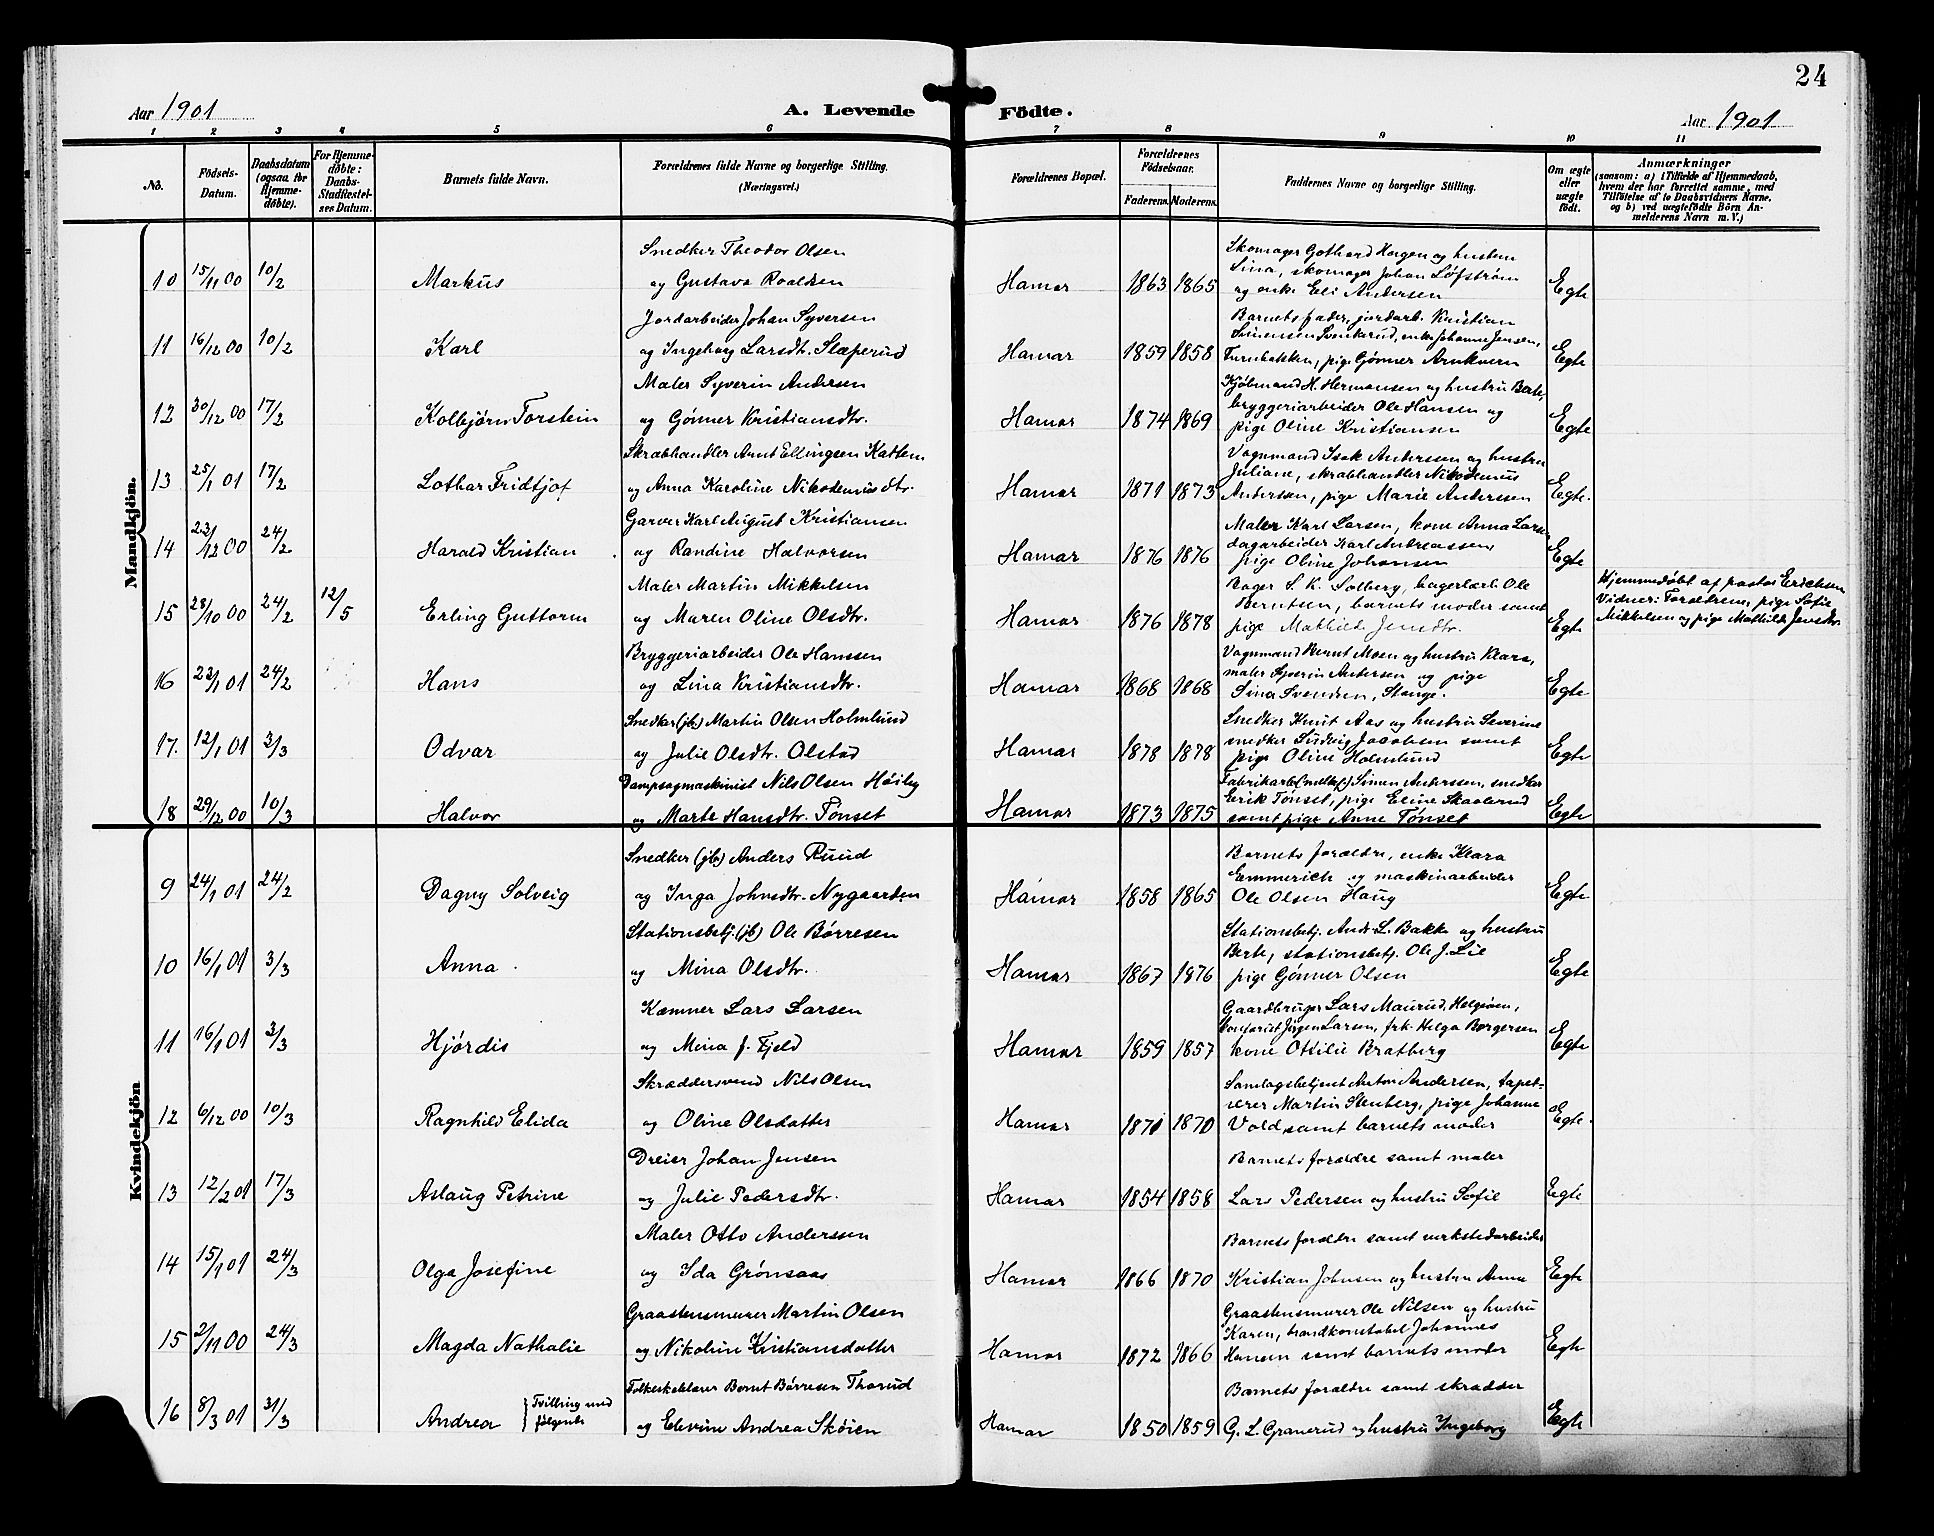 24
Aar 1901
A. Levende Födte.
Aar 1901
1 2 3 4 5 6 7 8 9 10 11
No.
Födsels-Datum.
Daabsdatum (ogsaa for Hjemme-döbte).
For Hjemme-döbte: Daabs-Stadfæstel-ses Datum.
Barnets fulde Navn.
Forældrenes fulde Navne og borgerlige Stilling.
(Næringsvei.)
Forældrenes Bopæl.
Forældrenes Födselsaar.
Faderens. Moderens.
Faddernes Navne og borgerlige Stilling.
Om ægte eller uægte födt.
Anmærkninger
(saasom: a) i Tilfælde af Hjemmedaab,
hvem der har forrettet samme, med
Tilföielse af to Daabsvidners Navne,
og b) ved uægtefödte Börn An-
melderens Navn m. V.)
Mandkjön.
Snedker Theodor Olsen
10 15/11 00 10/2 Markus og Gustava Roaldsen Hamar 1863 1865 Egte
Skomager Gothard Hagen og hustru
Lina, skomager Johan Löfström
og enke Eli Andersen
Jordarbeider Johan Syversen
11 16/12 00 10/2 Karl og Ingeborg Larsdtr. Slæperud Hamar 1859 1858 Egte
Barnets fader, jordarb. Kristian
Simensen, enke Johanne Jensen,
pige Gønner Arnkværn
Maler Syverin Andersen
12 30/12 00 17/2 Kolbjørn Torstein og Gønner Kristiansdtr. Hamar 1874 1869 Egte
Kjøbmand H. Hermansen og hustru Berte,
bryggeriarbeider Ole Hansen og
pige Oline Kristiansen
Skrabhandler Arnt Ellingsen Kattem
13 25/1 01 17/2 Lothar Fridtjof og Anna Karoline Nikodemusdtr. Hamar 1871 1873 Egte.
Vognmand Isak Anderssen og hustru
Juliane, skrabhandler Nikodemus
Andersen, pige Marie Anderssen
Garver Karl August Kristiansen
14 23/12 00 24/2 Harald Kristian og Randine Halvorsen Hamar 1876 1876 Egte
Maler Karl Larsen, kone Anna Larsen
dagarbeider Karl Andreassen,
pige Oline Johansen
Maler Martin Mikkelsen
15 28/10 00 24/2 12/5 Erling Guttorm og Maren Oline Olsdtr. Hamar 1876 1878 Egte
Bager S. K. Solberg, bagerlærl. Ole
Berntsen, barnets moder samt
pige Mathilde Jensdtr.
Hjemmedøbt af pastor Erichsen
Vidner: Forældrene, pige Sofie
Mikkelsen og pige Mathilde Jensdtr.
Bryggeriarbeider Ole Hanssen
16 23/1 01 24/2 Hans og Lina Kristiansdtr. Hamar 1868 1868 Egte
Vognmand Bernt Moen og hustru Klara,
maler Syverin Andersen og pige
Sina Svendsen, Stange.
Snedker (jb.) Martin Olsen Holmlund
17. 12/1 01 3/3 Odvar og Julie Olsdtr. Olstad Hamar 1878 1878 Egte
Snedker Knut Aas og hustru Severine
snedker Ludvig Jacobsen samt
pige Oline Holmlund
Dampsagmaskinist Nils Olsen Høiby
18 29/12 00 10/3 Halvor og Marte Hansdtr. Tønset Hamar 1873 1875 Egte
Simen Anderssen, snedker
Erik Tønset, pige Eline Skaalerud
samt pige Anne Tønset
Kvindekjön
Snedker (jb.) Anders Ruud
9 24/1 01 24/2 Dagny Solveig og Inga Johnsdtr. Nygaarden Hamar 1858 1865 Egte
Barnets forældre, enke Klara
Emmerich og maskinarbeider
Ole Olsen Haug
Stationsbetj. (jb.) Ole Børresen
10 16/1 01 3/3 Anna og Mina Olsdtr. Hamar 1867 1876 Egte
Stationsbetj. Andr. L. Bakke og hustru
Berte, stationsbetj. Ole J. Lie
pige Gønner Olsen
Kæmner Lars Larsen
11 16/1 01 3/3 Hjørdis og Mina f. Fjeld Hamar 1859 1857 Egte
Gaardbruger Lars Maurud, Helgøen,
Jørgen Larsen, frk. Helga Borgersen
kone Ottilie Bratberg
Skræddersvend Nils Olsen
12 6/12 00 10/3 Ragnhild Elida og Oline Olsdatter Hamar 1871 1870 Egte.
Samlagsbetjent Anton Andersen, tapet-
serer Martin Stenberg, pige Johanne
Vold samt barnets moder
Dreier Johan Jensen
13 12/2 01 17/3 Aslaug Petrine og Julie Pedersdtr. Hamar 1854 1858 Egte
Barnets forældre samt maler
Lars Pedersen og hustru Sofie
Maler Otto Anderssen
14 15/1 01 24/3 Olga Josefine og Ida Grønsaas Hamar 1866 1870 Egte
Barnets forældre samt verkstedarbeider
Kristian Johnsen og hustru Anna
Graastensmurer Martin Olsen
15 2/11 00 24/3 Magda Nathalie og Nikoline Kristiansdatter Hamar 1872 1866 Egte
Graastensmurer Ole Nilsen og hustru
Karen, brandkonstabel Johannes
Hansen samt barnets moder
Folkeskolelærer Bernt Børresen Thorud
16 8/3 01 31/3 Andrea Tvilling med følgende og Elevine Andrea Skøien Hamar 1850 1859 Egte
Barnets forældre samt skrædder
G. L. Granerud og hustru Ingeborg